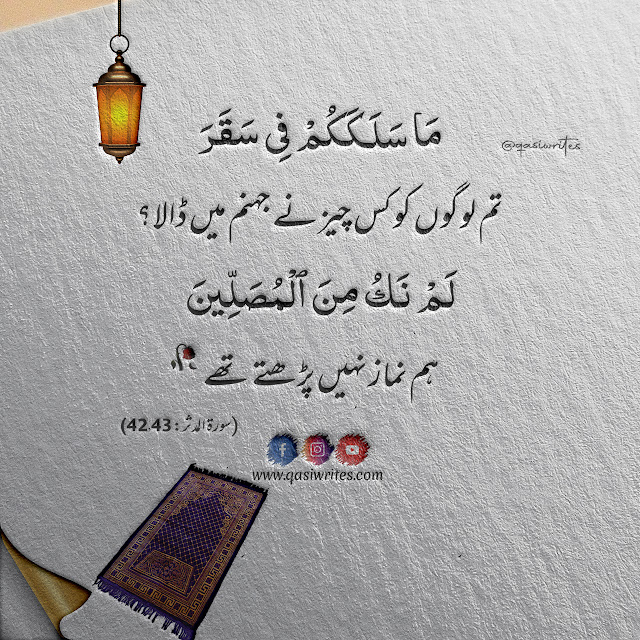 مَا سَلَكَكُمْ فِى سَقَرَ
@qasiwrites
تم لوگوں کو کس چیز نے جہنم میں ڈالا؟
لَمْ نَكُ مِنَ ٱلْمُصَلِّينَ
ہم نماز نہیں پڑھتے تھے
(سورۃ المدثر: 42.43)
www.qasiwrites.com